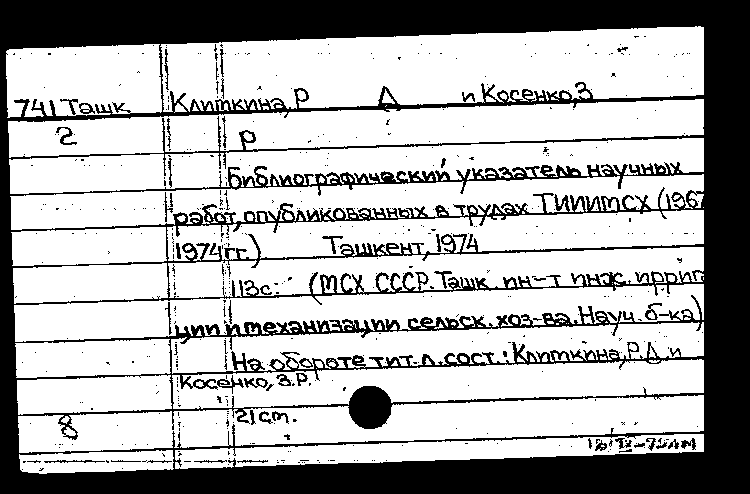 741 Ташк Клиткина, Р Д и Косенко, З
2 Р
Библиографический указатель научных
работ, опубликованных в трудах ТИИИМСХ (1967
1974гг.) Ташкент, 1974
113с. (МСХ СССР. Ташк. ин-т инж. иррига
ции и механизации сельск. хоз-ва. Науч. б-ка)
На обороте тит. л. сост.: Клиткина, Р.Д. и
Косенко, З.Р.
8 21 cm.